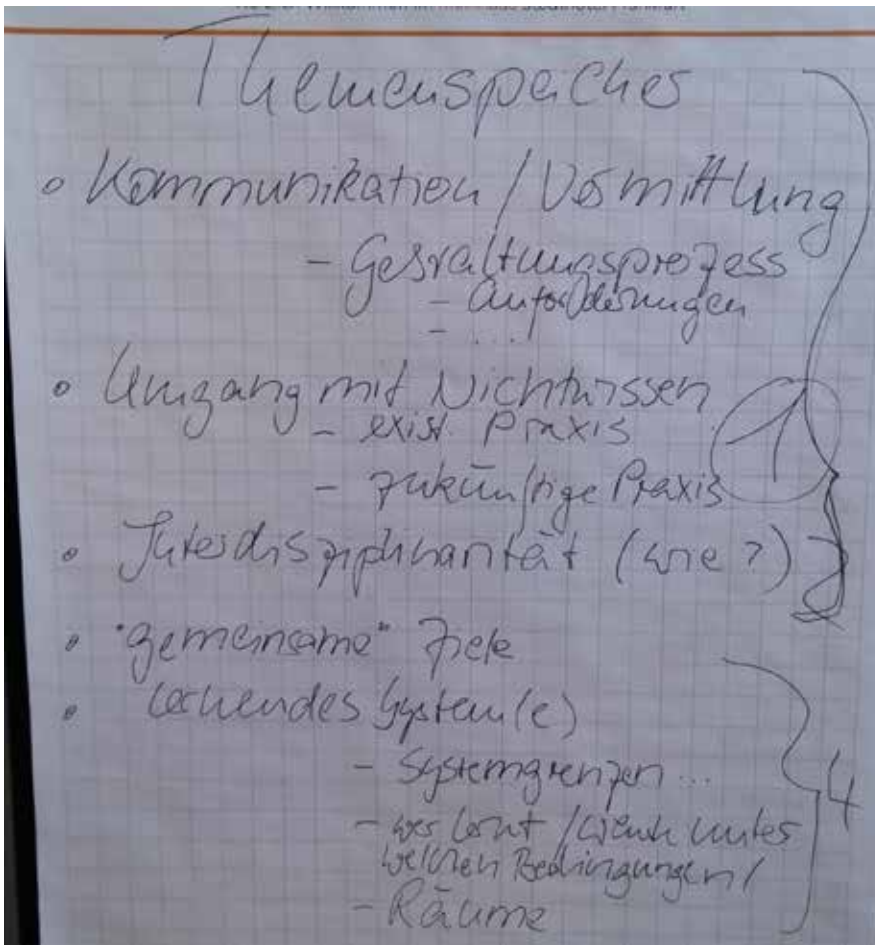 Themenspeicher
• Kommunikation / Vermittlung
- Gestaltungsprozess
- Anforderungen
- ...
• Umgang mit Nichtwissen
- exist. Praxis
- zukünftige Praxis
1
• Interdisziplinarität (wie?)
• "gemeinsame" Ziele
• lernendes System(e)
- Systemgrenzen ...
- wer lernt / unter
welchen Bedingungen /
- Räume
4